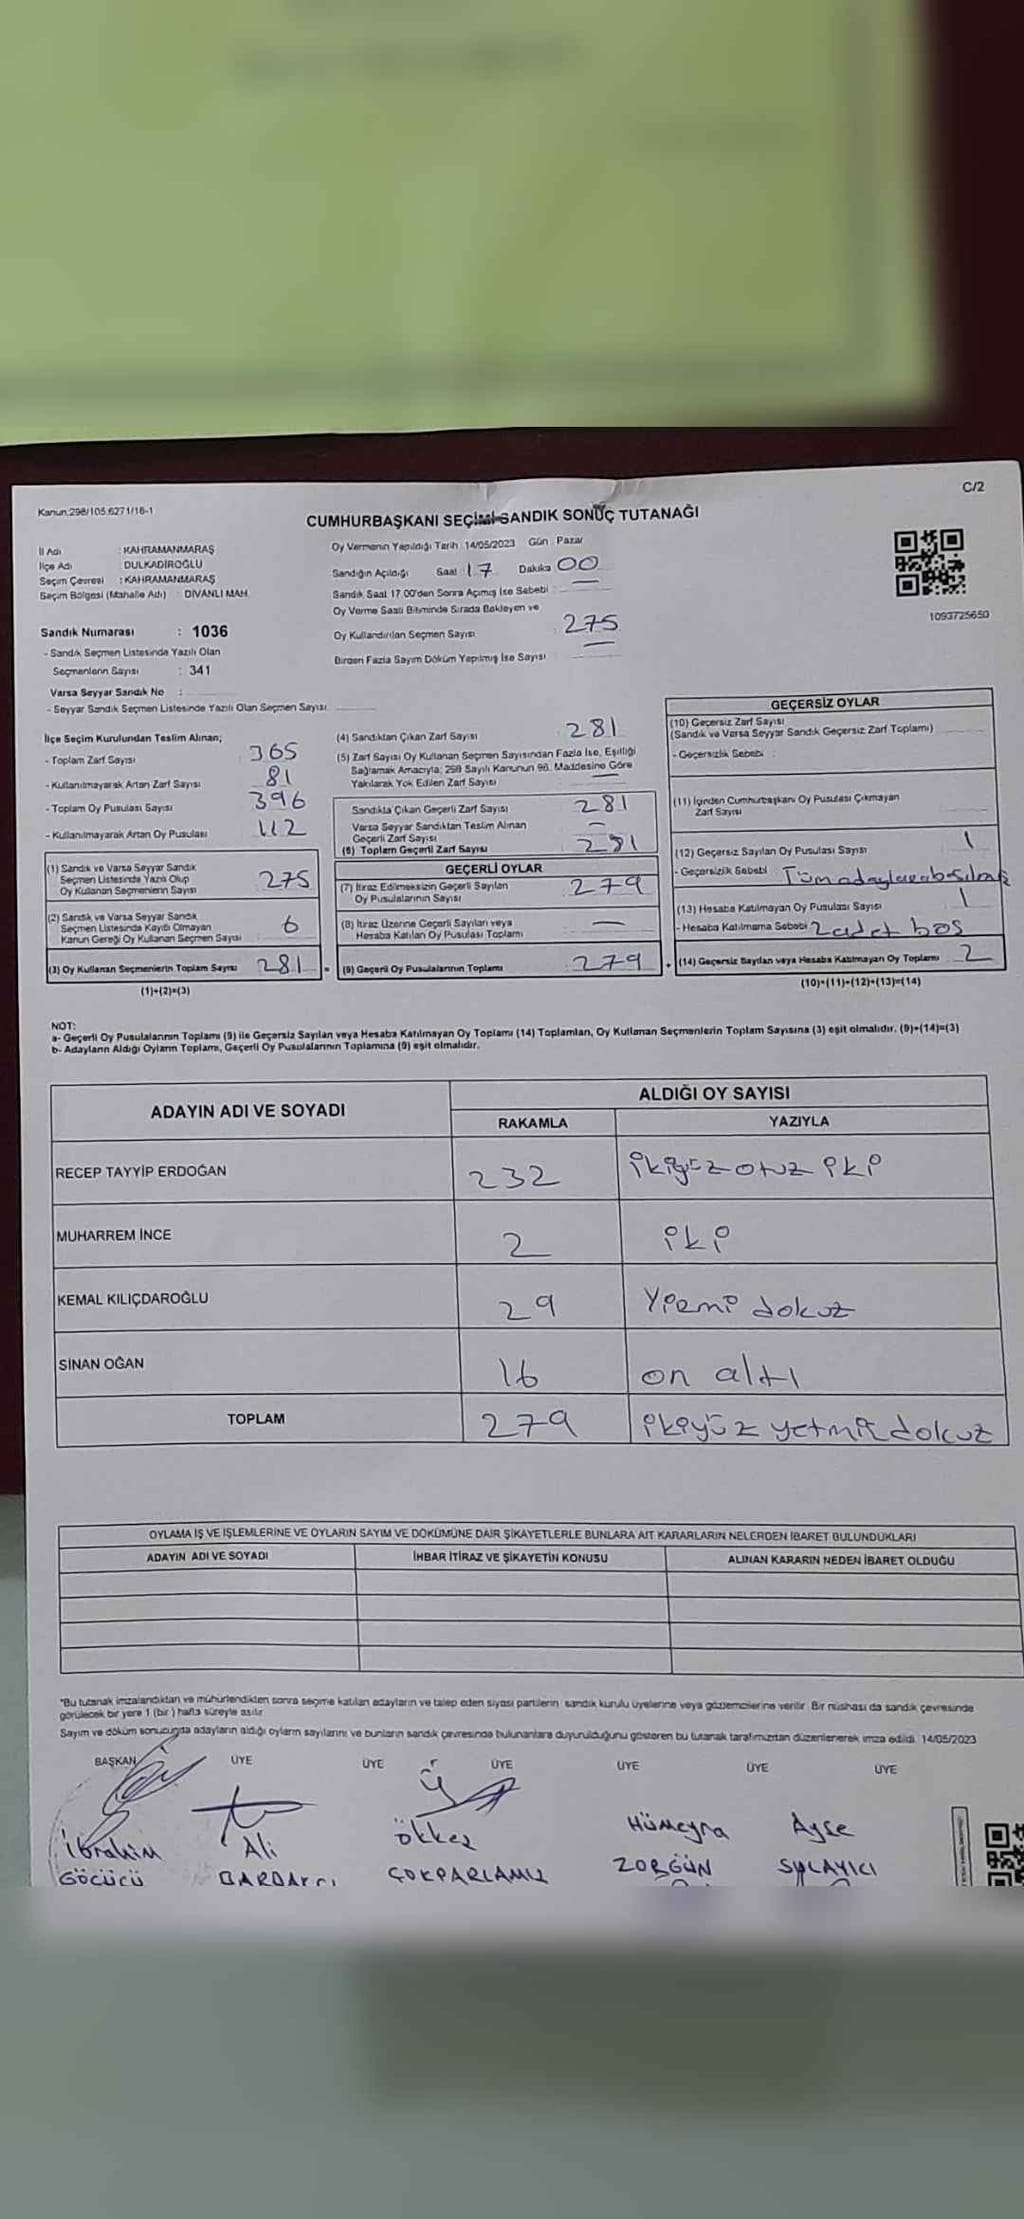 C/2
Kanun:298/105,6271/16-1
CUMHURBAŞKANI SEÇİMİ SANDIK SONUÇ TUTANAĞI
İl Adı : KAHRAMANMARAŞ
İlçe Adı DULKADİROĞLU
Seçim Çevresi : KAHRAMANMARAŞ
Seçim Bölgesi (Mahalle Adı) : DİVANLI MAH.
Oy Vermenin Yapıldığı Tarih : 14/05/2023 Gün : Pazar
Sandığın Açıldığı Saat 17 Dakika 00
Sandık Saat 17.00'den Sonra Açılmış İse Sebebi : —
Oy Verme Saati Bitiminde Sırada Bekleyen ve
Oy Kullandırılan Seçmen Sayısı 275
Birden Fazla Sayım Döküm Yapılmış İse Sayısı —
1093725650
Sandık Numarası : 1036
- Sandık Seçmen Listesinde Yazılı Olan
Seçmenlerin Sayısı : 341
Varsa Seyyar Sandık No :
- Seyyar Sandık Seçmen Listesinde Yazılı Olan Seçmen Sayısı
İlçe Seçim Kurulundan Teslim Alınan;
- Toplam Zarf Sayısı 365
- Kullanılmayarak Artan Zarf Sayısı 81
- Toplam Oy Pusulası Sayısı 396
- Kullanılmayarak Artan Oy Pusulası 112
(1) Sandık ve Varsa Seyyar Sandık
Seçmen Listesinde Yazılı Olup
Oy Kullanan Seçmenlerin Sayısı 275
(2) Sandık ve Varsa Seyyar Sandık
Seçmen Listesinde Kayıtlı Olmayan
Kanun Gereği Oy Kullanan Seçmen Sayısı 6
(3) Oy Kullanan Seçmenlerin Toplam Sayısı 281
(1)+(2)=(3)
(4) Sandıktan Çıkan Zarf Sayısı 281
(5) Zarf Sayısı Oy Kullanan Seçmen Sayısından Fazla İse, Eşitliği
Sağlamak Amacıyla; 298 Sayılı Kanunun 98. Maddesine Göre
Yakılarak Yok Edilen Zarf Sayısı —
Sandıkta Çıkan Geçerli Zarf Sayısı 281
Varsa Seyyar Sandıktan Teslim Alınan
Geçerli Zarf Sayısı —
(6) Toplam Geçerli Zarf Sayısı 281
GEÇERLİ OYLAR
(7) İtiraz Edilmeksizin Geçerli Sayılan
Oy Pusulalarının Sayısı 279
(8) İtiraz Üzerine Geçerli Sayılan veya
Hesaba Katılan Oy Pusulası Toplamı —
= (9) Geçerli Oy Pusulalarının Toplamı 279
GEÇERSİZ OYLAR
(10) Geçersiz Zarf Sayısı
(Sandık ve Varsa Seyyar Sandık Geçersiz Zarf Toplamı)
- Geçersizlik Sebebi :
(11) İçinden Cumhurbaşkanı Oy Pusulası Çıkmayan
Zarf Sayısı
(12) Geçersiz Sayılan Oy Pusulası Sayısı 1
- Geçersizlik Sebebi Tüm adaylara basılmak
(13) Hesaba Katılmayan Oy Pusulası Sayısı 1
- Hesaba Katılmama Sebebi 2 adet boş
+ (14) Geçersiz Sayılan veya Hesaba Katılmayan Oy Toplamı 2
(10)+(11)+(12)+(13)=(14)
NOT:
a- Geçerli Oy Pusulalarının Toplamı (9) ile Geçersiz Sayılan veya Hesaba Katılmayan Oy Toplamı (14) Toplamları, Oy Kullanan Seçmenlerin Toplam Sayısına (3) eşit olmalıdır. (9)+(14)=(3)
b- Adayların Aldığı Oyların Toplamı, Geçerli Oy Pusulalarının Toplamına (9) eşit olmalıdır.
ADAYIN ADI VE SOYADI
ALDIĞI OY SAYISI
RAKAMLA YAZIYLA
RECEP TAYYİP ERDOĞAN 232 ikiyüz otuz iki
MUHARREM İNCE 2 iki
KEMAL KILIÇDAROĞLU 29 Yirmi dokuz
SİNAN OĞAN 16 on altı
TOPLAM 279 ikiyüz yetmiş dokuz
OYLAMA İŞ VE İŞLEMLERİNE VE OYLARIN SAYIM VE DÖKÜMÜNE DAİR ŞİKAYETLERLE BUNLARA AİT KARARLARIN NELERDEN İBARET BULUNDUKLARI
ADAYIN ADI VE SOYADI İHBAR İTİRAZ VE ŞİKAYETİN KONUSU ALINAN KARARIN NEDEN İBARET OLDUĞU
*Bu tutanak imzalandıktan ve mühürlendikten sonra seçime katılan adayların ve talep eden siyasi partilerin sandık kurulu üyelerine veya gözlemcilerine verilir. Bir nüshası da sandık çevresinde
görülecek bir yere 1 (bir) hafta süreyle asılır.
Sayım ve döküm sonucunda adayların aldığı oyların sayılarını ve bunların sandık çevresinde bulunanlara duyurulduğunu gösteren bu tutanak tarafımızdan düzenlenerek imza edildi. 14/05/2023
BAŞKAN ÜYE ÜYE ÜYE ÜYE ÜYE ÜYE
İbrahim Ali Ökkeş Hümeyra Ayşe
GÖÇÜCÜ ÇOKPARLAMIŞ ZORGÜN